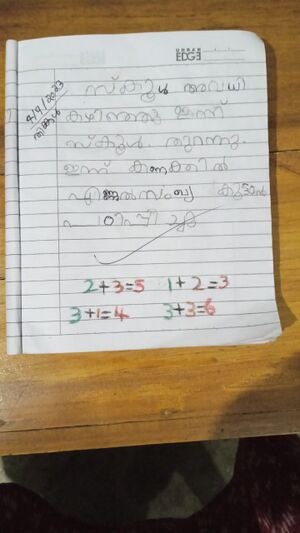 URBAN
EDGE
4/9/2023
തിങ്കൾ
സ്ക്കൂൾ അവധി
കഴിഞ്ഞു ഇന്ന്
സ്ക്കൂൾ തുറന്നു.
ഇന്ന് കണക്കിൽ
കൂട്ടാൻ
പഠിപ്പിച്ചു
2+3=5 1+2=3
3+1=4 3+3=6